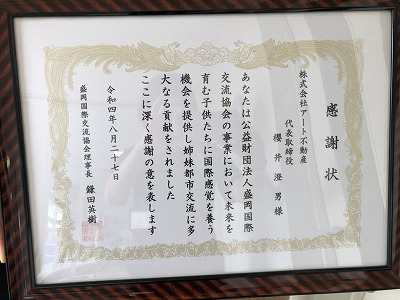 感謝状
株式会社アート不動産
代表取締役
櫻井澄男様
あなたは公益財団法人盛岡国際
交流協会の事業において未来を
育む子供たちに国際感覚を養う
機会を提供し姉妹都市交流に多
大なる貢献をされました
ここに深く感謝の意を表します
令和四年八月二十七日
盛岡国際交流協会理事長 鎌田英樹